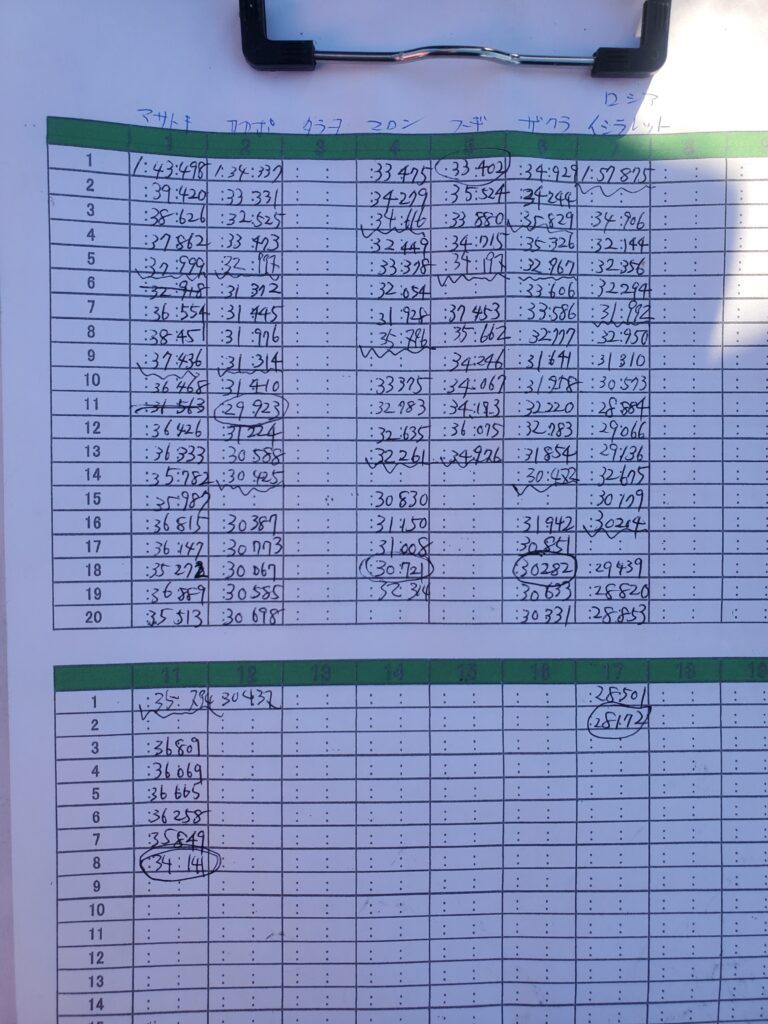 ロシア
マサトキ カカポ カラーヲ マロン フーギ ザクラ イシラレット
1 2 3 4 5 6 7 8
1 1:43:498 1:34:337 :33 475 :33.402 :34:929 1:57875
2 :39:420 :33 331 34279 35:524 :34 244
3 :38:626 :32:525 :34:616 33 880 :35:829 :34:906
4 :37862 :33 473 32449 :34:715 :35:326 :32:144
5 :37:999 :32:977 :33:378 :34:193 :32:967 :32:356
6 :32:918 :31 372 32:054 :33 606 :32:294
7 :36:554 :31 445 :31:928 :37 453 :33:586 :31:992
8 :38:451 :31:976 :35:796 :35:662 :32:777 :32:950
9 :37:436 :31:314 :34:246 :31 641 :31 310
10 :36 468 :31 410 :33375 :34:067 :31:958 :30:573
11 :31 563 :29 923 :32:783 :34:193 :32 220 :28884
12 :36426 :31224 :32:635 :36:075 :32:783 :29066
13 :36333 :30 588 :32 261 :34926 :31854 :29136
14 :35:782 :30 425 :30:452 :32675
15 :35:987 :30 830 :30 179
16 :36 815 :30387 :31:150 :31942 :30204
17 :36:147 :30 773 :31:008 :30 851
18 :35 272 :30 067 :30 721 :30282 :29 439
19 :36 889 :30 585 :32 314 :30 633 :28 820
20 :35 513 :30 698 :30 331 :28:853
11 12 13 14 15 16 17 18
1 :35:794 30437 :28501
2 :28172
3 :36809
4 :36 069
5 :36 665
6 :36 258
7 :35849
8 :34:141
9
10
11
12
13
14